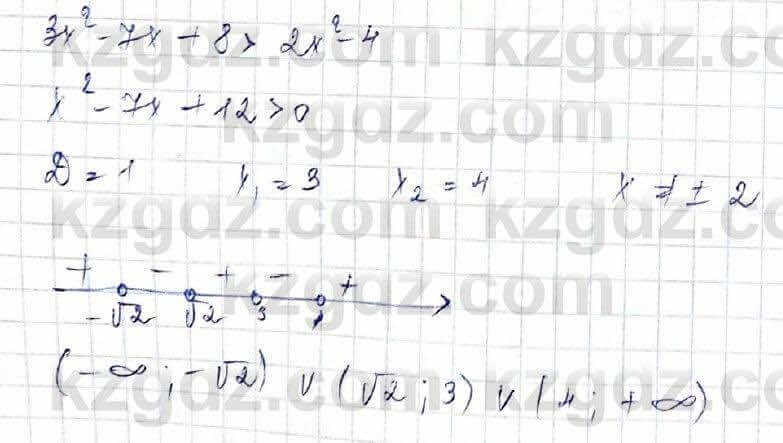 3x² - 7x + 8 > 2x² - 4
x² - 7x + 12 > 0
D = 1 x₁ = 3 x₂ = 4 x ≠ ± 2
+ - + - +
-√2 √2 3 4
(-∞; -√2) ∨ (√2; 3) ∨ (4; +∞)
kzgdz.com
kzgdz.com
kzgdz.com
kzgdz.com
kzgdz.com
kzgdz.com
kzgdz.com